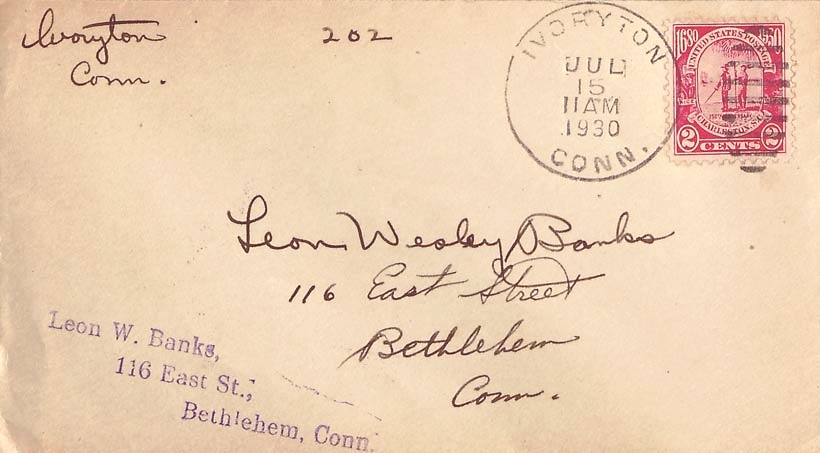 Ivoryton
Conn.
202
IVORYTON
JUL
15
11AM
1930
CONN.
1680 1930
UNITED STATES POSTAGE
CHARLESTON, S.C.
2 CENTS 2
Leon Wesley Banks
116 East Street
Bethlehem
Conn.
Leon W. Banks,
116 East St.,
Bethlehem, Conn.